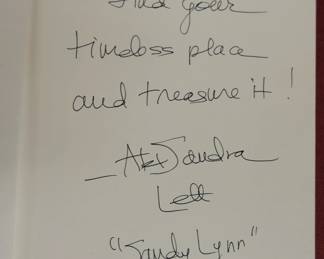 Find your
timeless place
and treasure it!
— Alexandra
Lett
"Sandy Lynn"